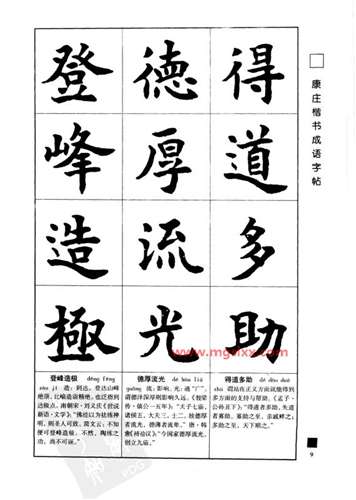 康庄楷书成语字帖
得道多助
德厚流光
登峰造極
得道多助 dé dào duō
zhù 谓站在正义方面就能得到
多方面的支持与帮助。《孟子·
公孙丑下》:“得道者多助,失道
者寡助。寡助之至,亲戚畔之;
多助之至,天下顺之。”
德厚流光 dé hòu liú
guāng 流,影响。光,通“广”。
谓德泽深厚则影响久远。《榖梁
传·僖公十五年》:“天子七庙,
诸侯五,大夫三,士二。故德厚
者流光,德薄者流卑。”唐·韩
愈《禘祫议》:“今国家德厚流光,
创立九庙。”
登峰造极 dēng fēng
zào jí 造:到达。登达山峰
绝顶,比喻造诣精绝,也泛指到
达极点。南朝宋·刘义庆《世说
新语·文学》:“佛经以为祛练神
明,则圣人可致。简文云:不知
便可登峰造极不。然陶练之
功,尚不可诬。”
9